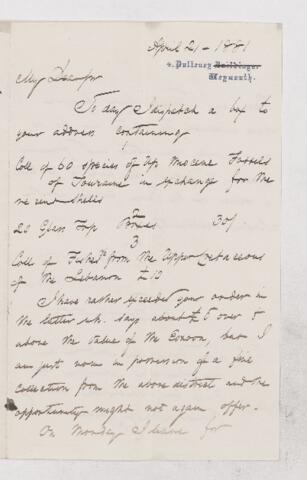 April 21 - 1881
4, Pulteney Buildings,
Weymouth.
My Dear Sir
To day I dispatch a box to
your address containing
Coll of 60 species of Up. Miocene Fossils
of Touraine in exchange for the
recent shells
20 Glass Top Boxes 30/
3
Coll of Fishes from the Upper Cretaceous
of the Lebanon £10
I have rather exceeded your order in
the latter wh. says about £5 over &
above the value of the Eozoon, but I
am just now in possession of a fine
collection from the above district and the
opportunity might not again offer.
On Monday I leave for